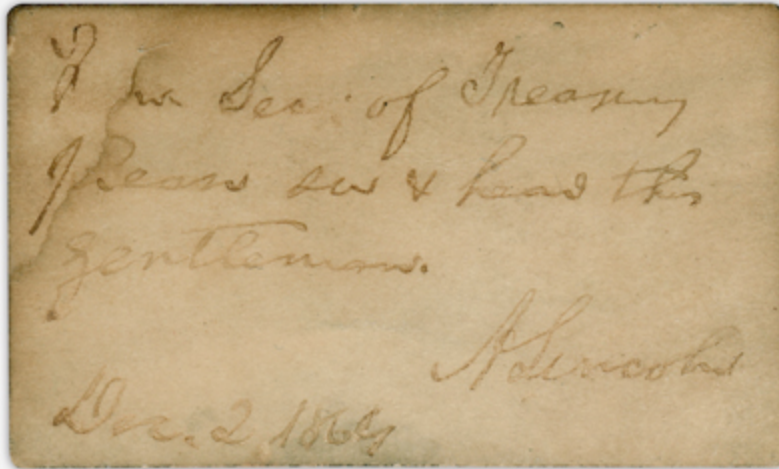 Sec. of Treasury
please see & hear this
gentleman.
A Lincoln
Dec. 2, 1864